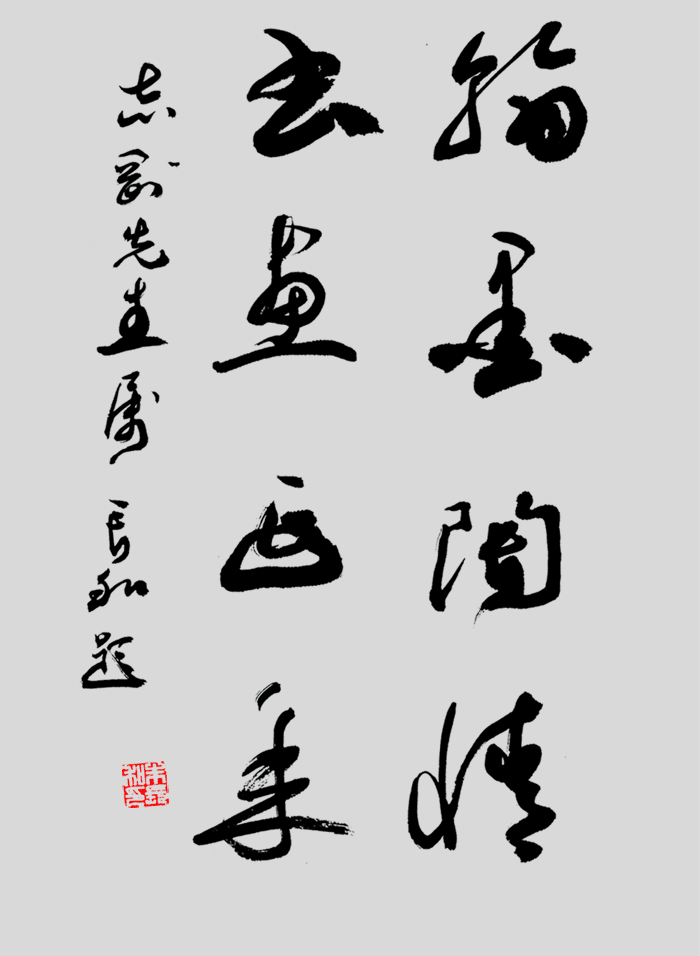 翰墨陶情
書畫延年
志剛先生属 長和題